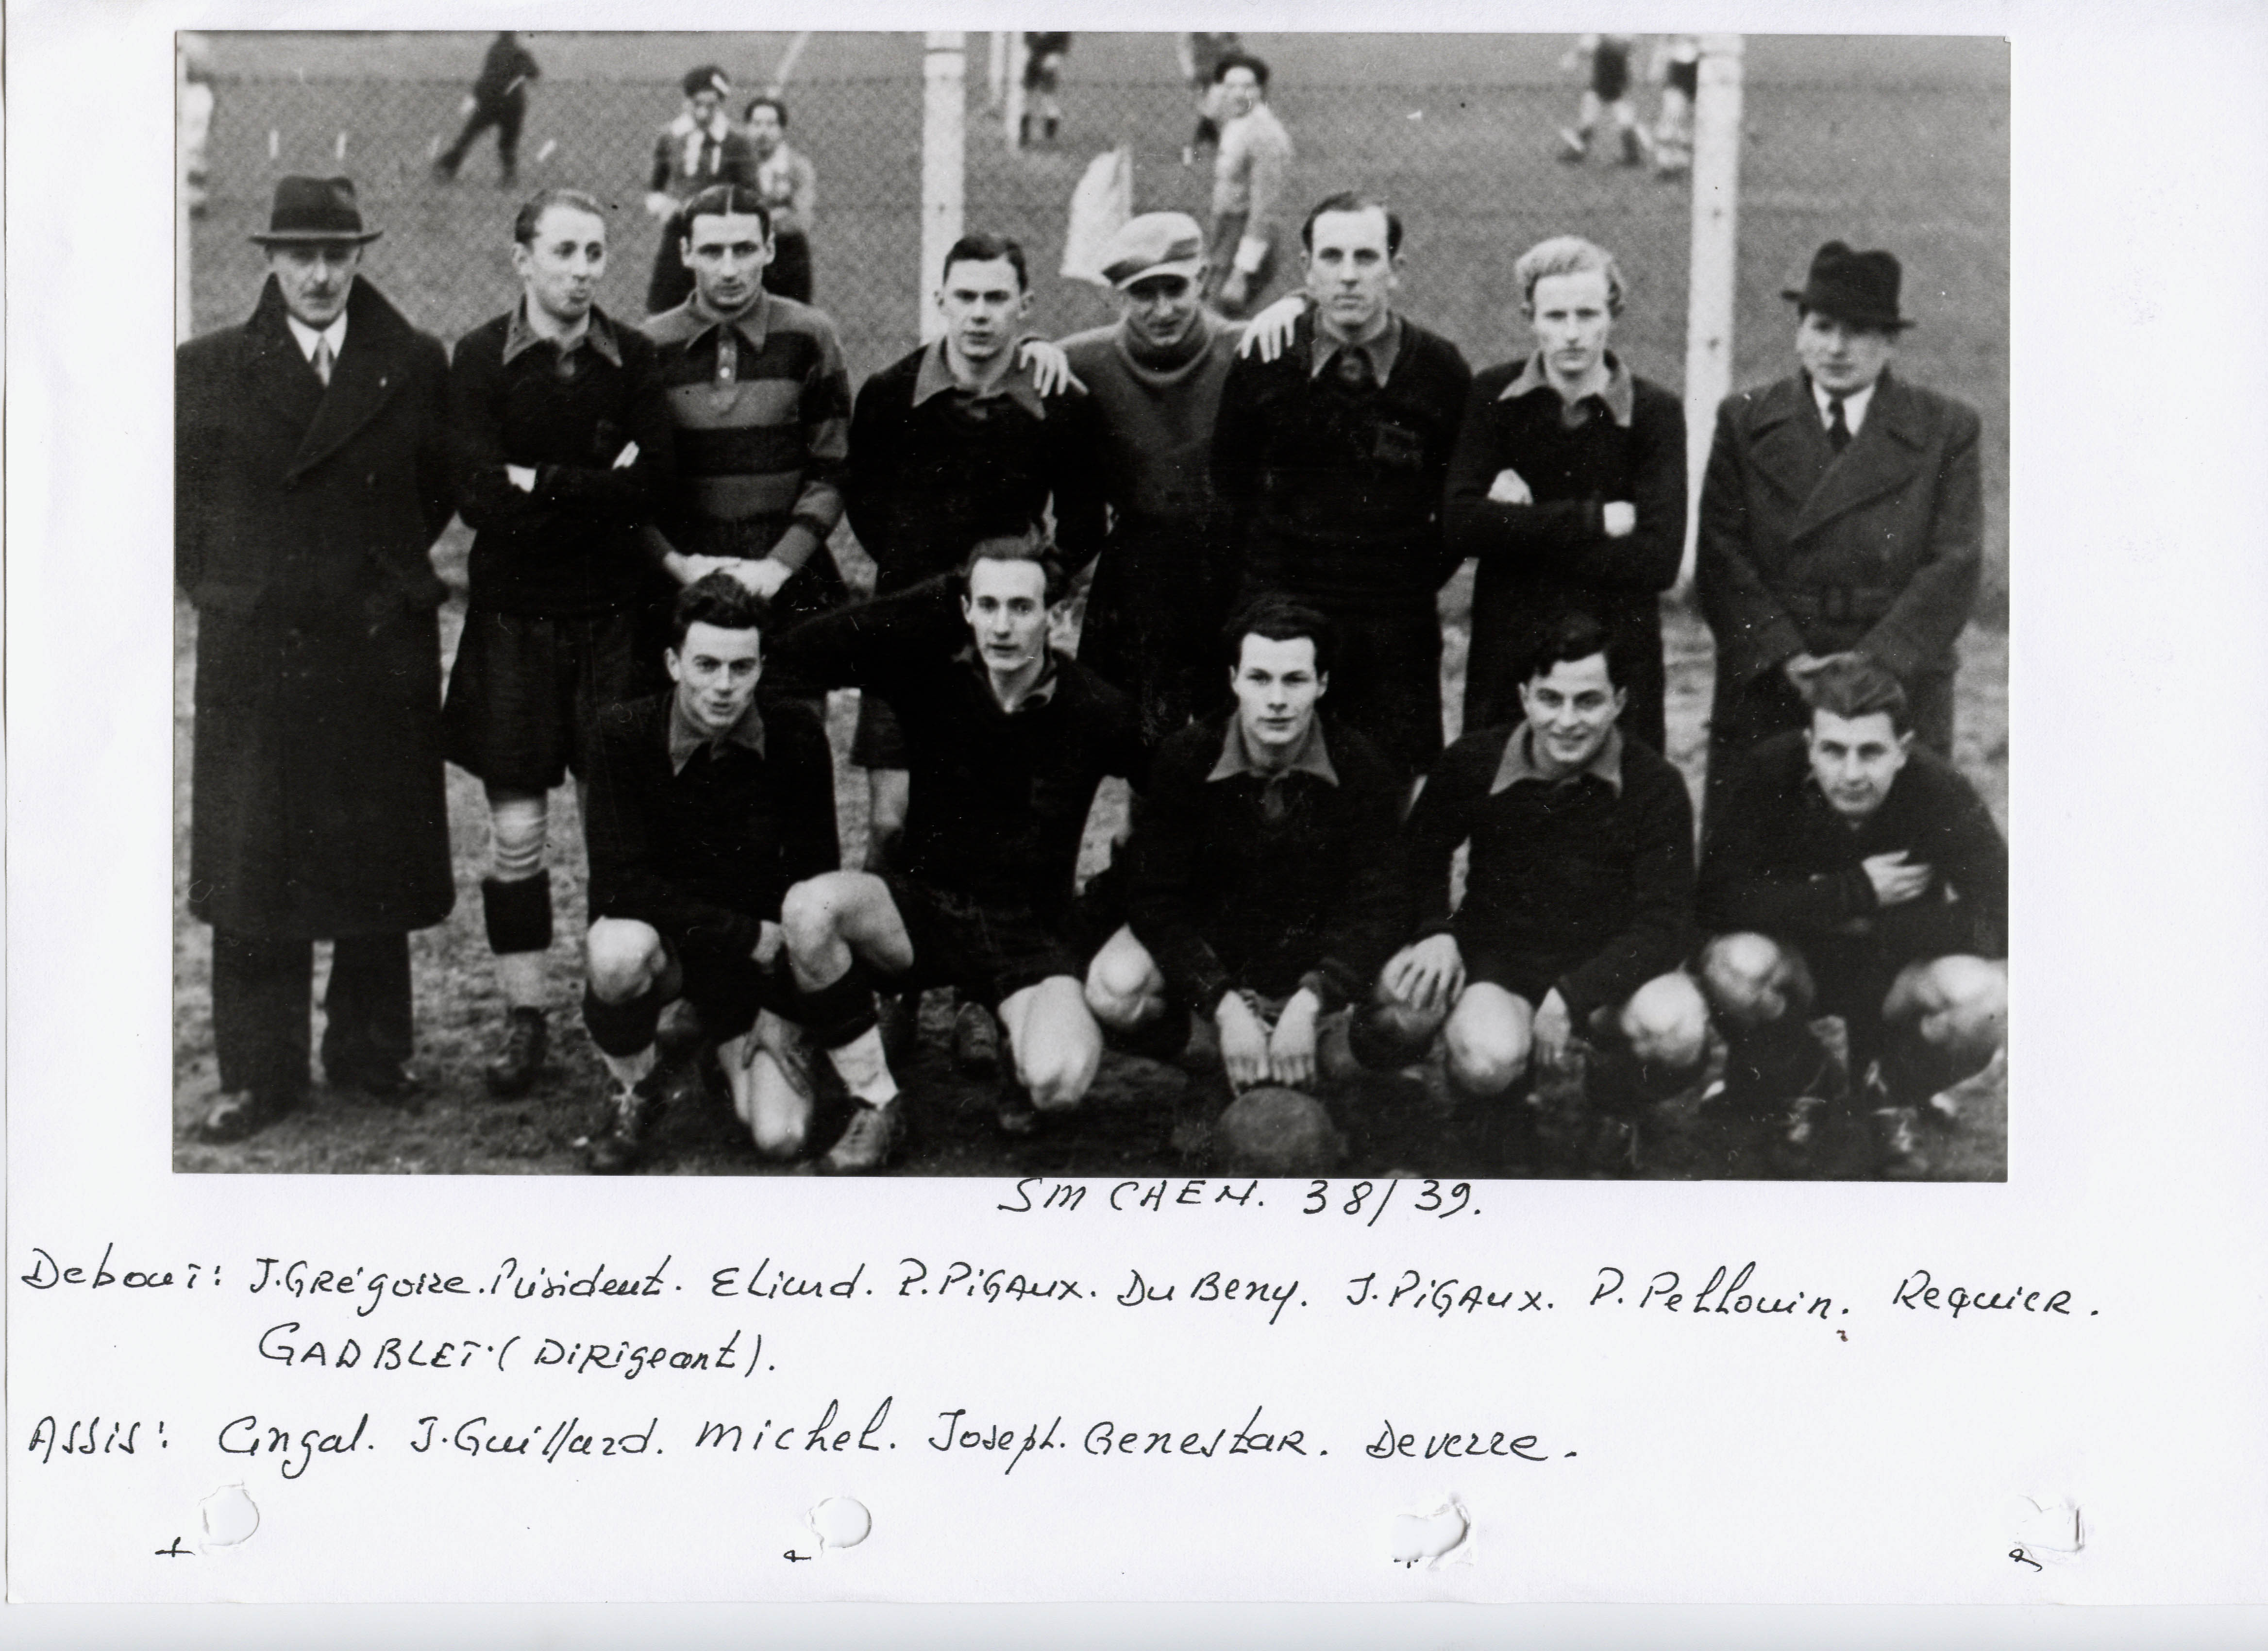 SM CAEN. 38/39.
Debout: J.GRégoire.Président. Eliard. P.PiGAux. Du Beny. J.PiGAux. P.Pellouin. Requier.
GADBLET.(DiRigeant).
Assis: Cingal. J.Guillard. Michel. Joseph. Genestar. Deverre.